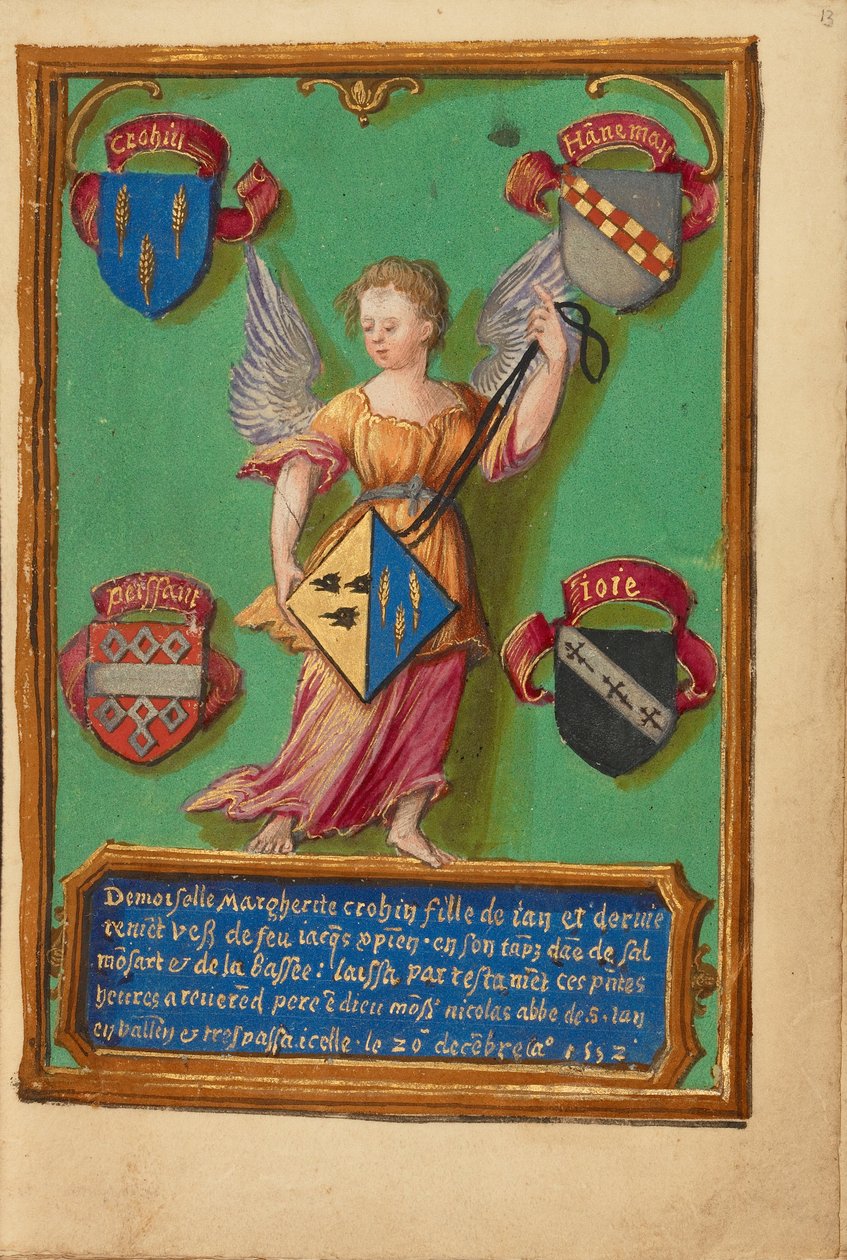 13
Crohin
Hānemau
perssant
ioie
Demoiselle Margherite crohin fille de ian et dernie
remēt de feu iacqs en son dāe de sal
mōsart et de la Bassee: laissa par testamēt ces pñtes
heures a reuerēd pere ē dieu mōsr nicolas abbe de. s. ian
en et trespassa icelle. le 20 decēbre 1552